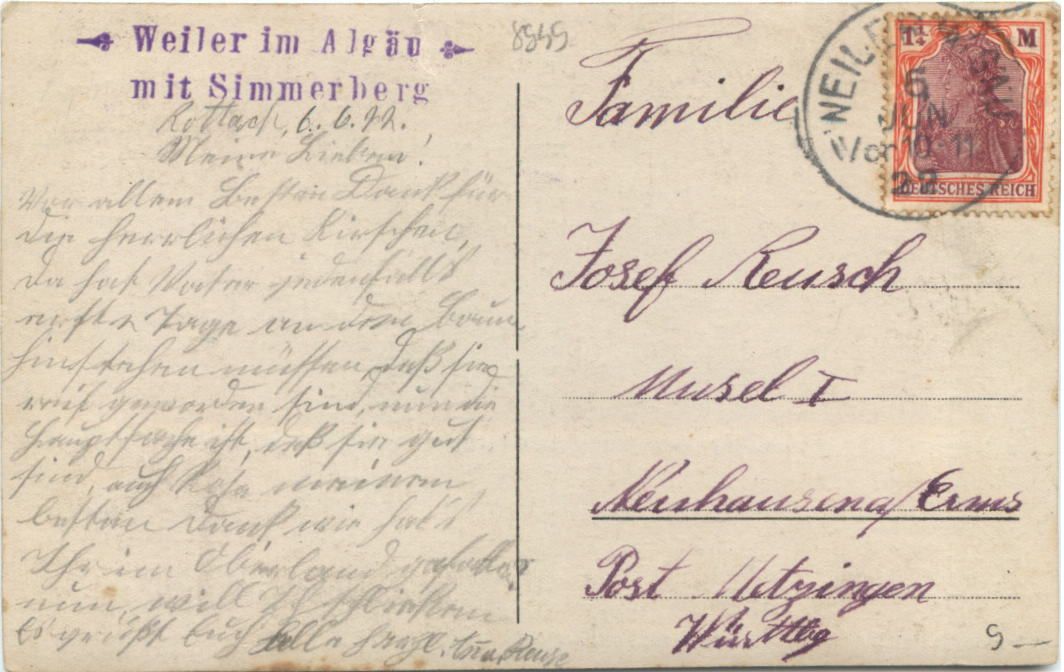 Weiler im Algäu
mit Simmerberg
8545
Rottach, 6. 6. 22.
Meine Lieben!
Vor allem besten Dank für
die herrlichen Kirschen,
da hat Vater jedenfalls
erste Tage an den Baum
hinstehen müssen, daß sie
reif geworden sind, nun die
Hauptsache ist, daß sie gut
sind, auch Rosa meinen
besten Dank wie hat's
Ihr im Oberland gefallen
nun, will ich schließen
Es grüßt Euch alle herzl.
WEILER
5
JUN
Vor 10-11
22
1¼ M
DEUTSCHES REICH
Familie
Josef Reusch
Musel I
Neuhausen a/Erms
Post Metzingen
Württbg
9 –